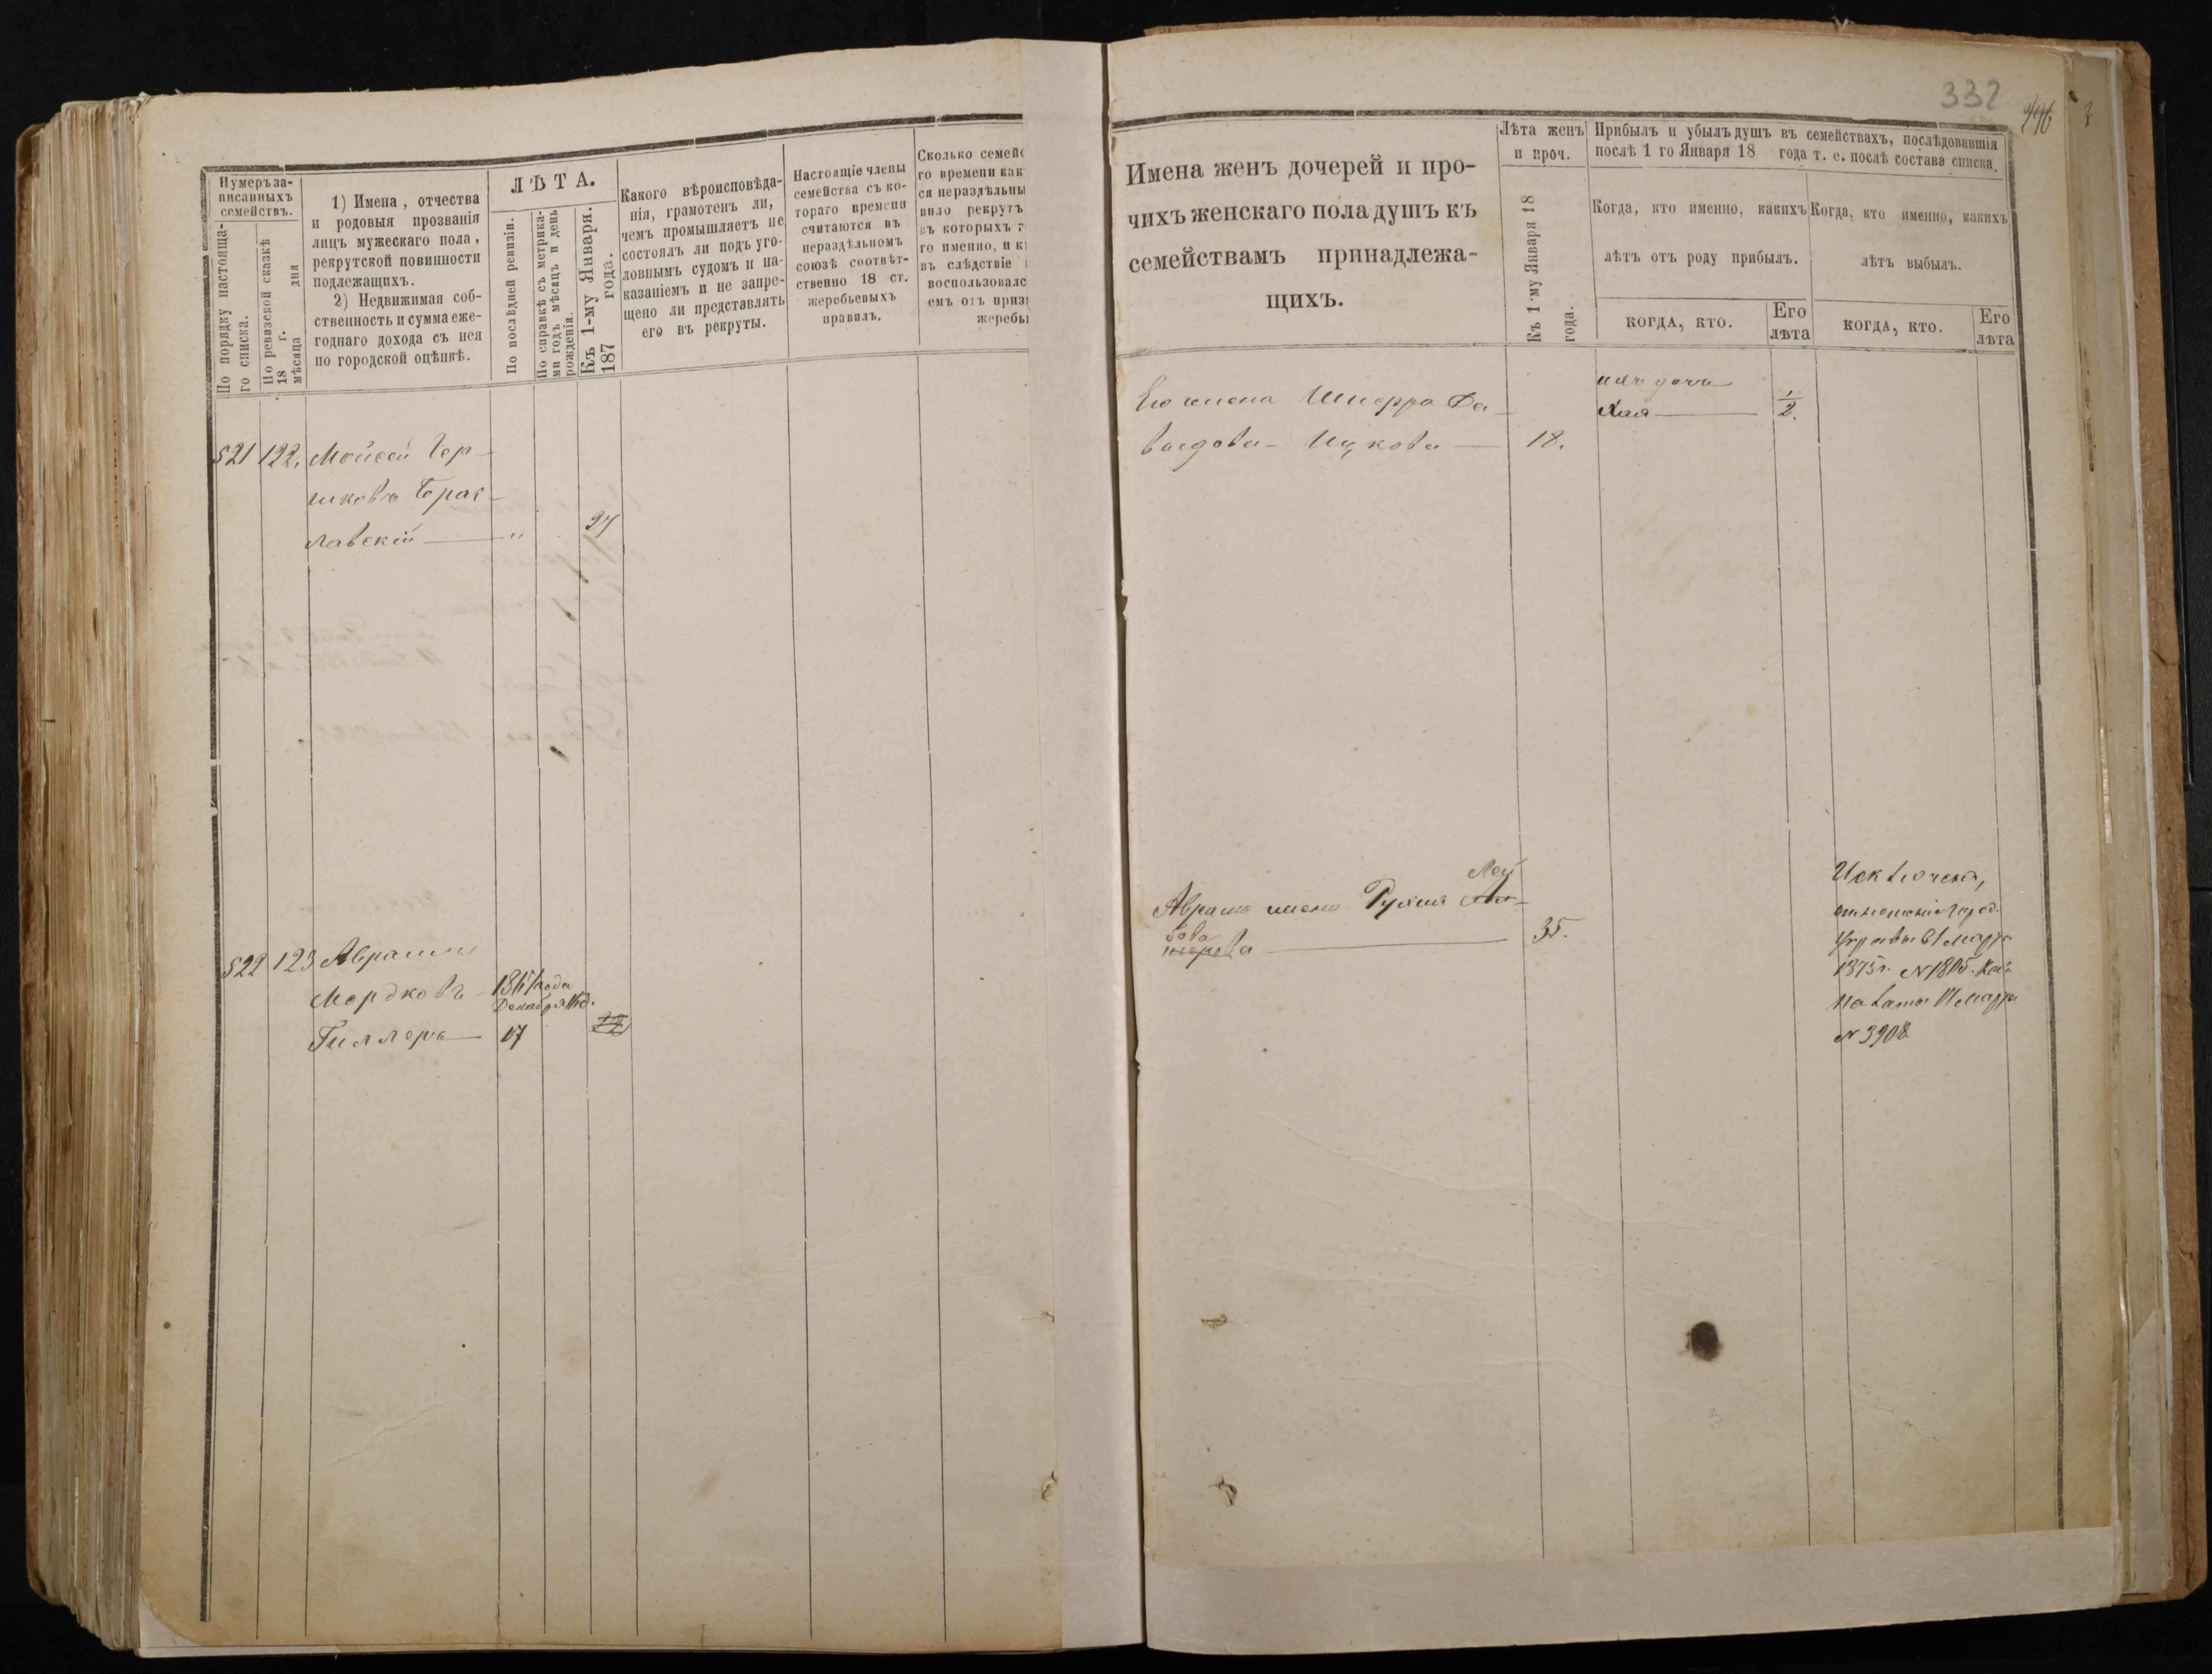 Нумеръ за-
писанныхъ
семействъ.
По порядку настояща-
го списка.
По ревизской сказкѣ
18 г.
мѣсяца дня
1) Имена, отчества
и родовыя прозванія
лицъ мужескаго пола,
рекрутской повинности
подлежащихъ.
2) Недвижимая соб-
ственность и сумма еже-
годнаго дохода съ нея
по городской оцѣнкѣ.
ЛѢТА.
По послѣдней ревизіи.
По справкѣ съ метрика-
ми годъ мѣсяцъ и день
рожденія.
Къ 1-му Января.
187 года.
Какого вѣроисповѣда-
нія, грамотенъ ли,
чемъ промышляетъ не
состоялъ ли подъ уго-
ловнымъ судомъ и на-
казаніемъ и не запре-
щено ли представлять
его въ рекруты.
Настоящіе члены
семейства съ ко-
тораго времени
считаются въ
нераздѣльномъ
союзѣ соотвѣт-
ственно 18 ст.
жеребьевыхъ
правилъ.
Сколько семейс
го времени как
ся нераздѣльны
вило рекрутъ
въ которыхъ г
го именно, и к
въ слѣдствіе
воспользовалс
емъ отъ призы
жеребы
521 122. Мойсей Гер-
шковъ Брас-
лавскій — " 27
522 123 Аврамъ
Мордковъ
Декабря
Гиллеръ — 17
332
446
Имена женъ дочерей и про-
чихъ женскаго пола душъ къ
семействамъ принадлежа-
щихъ.
Лѣта женъ
и проч.
Къ 1-му Января 18
года.
Прибылъ и убылъ душъ въ семействахъ, послѣдовавшія
послѣ 1 го Января 18 года т. е. послѣ состава списка.
Когда, кто именно, какихъ
лѣтъ отъ роду прибылъ.
Когда, кто именно, какихъ
лѣтъ выбылъ.
КОГДА, КТО.
Его
лѣта
КОГДА, КТО.
Его
лѣта
Его жена Шифра Да-
видова — Ицкова — 18.
ихъ дочь
Хая — 1/2.
Аврама жена Рухля
Лей
бова — 35.
Исключена,
1875 г. N 1805.
Палаты
N 3908